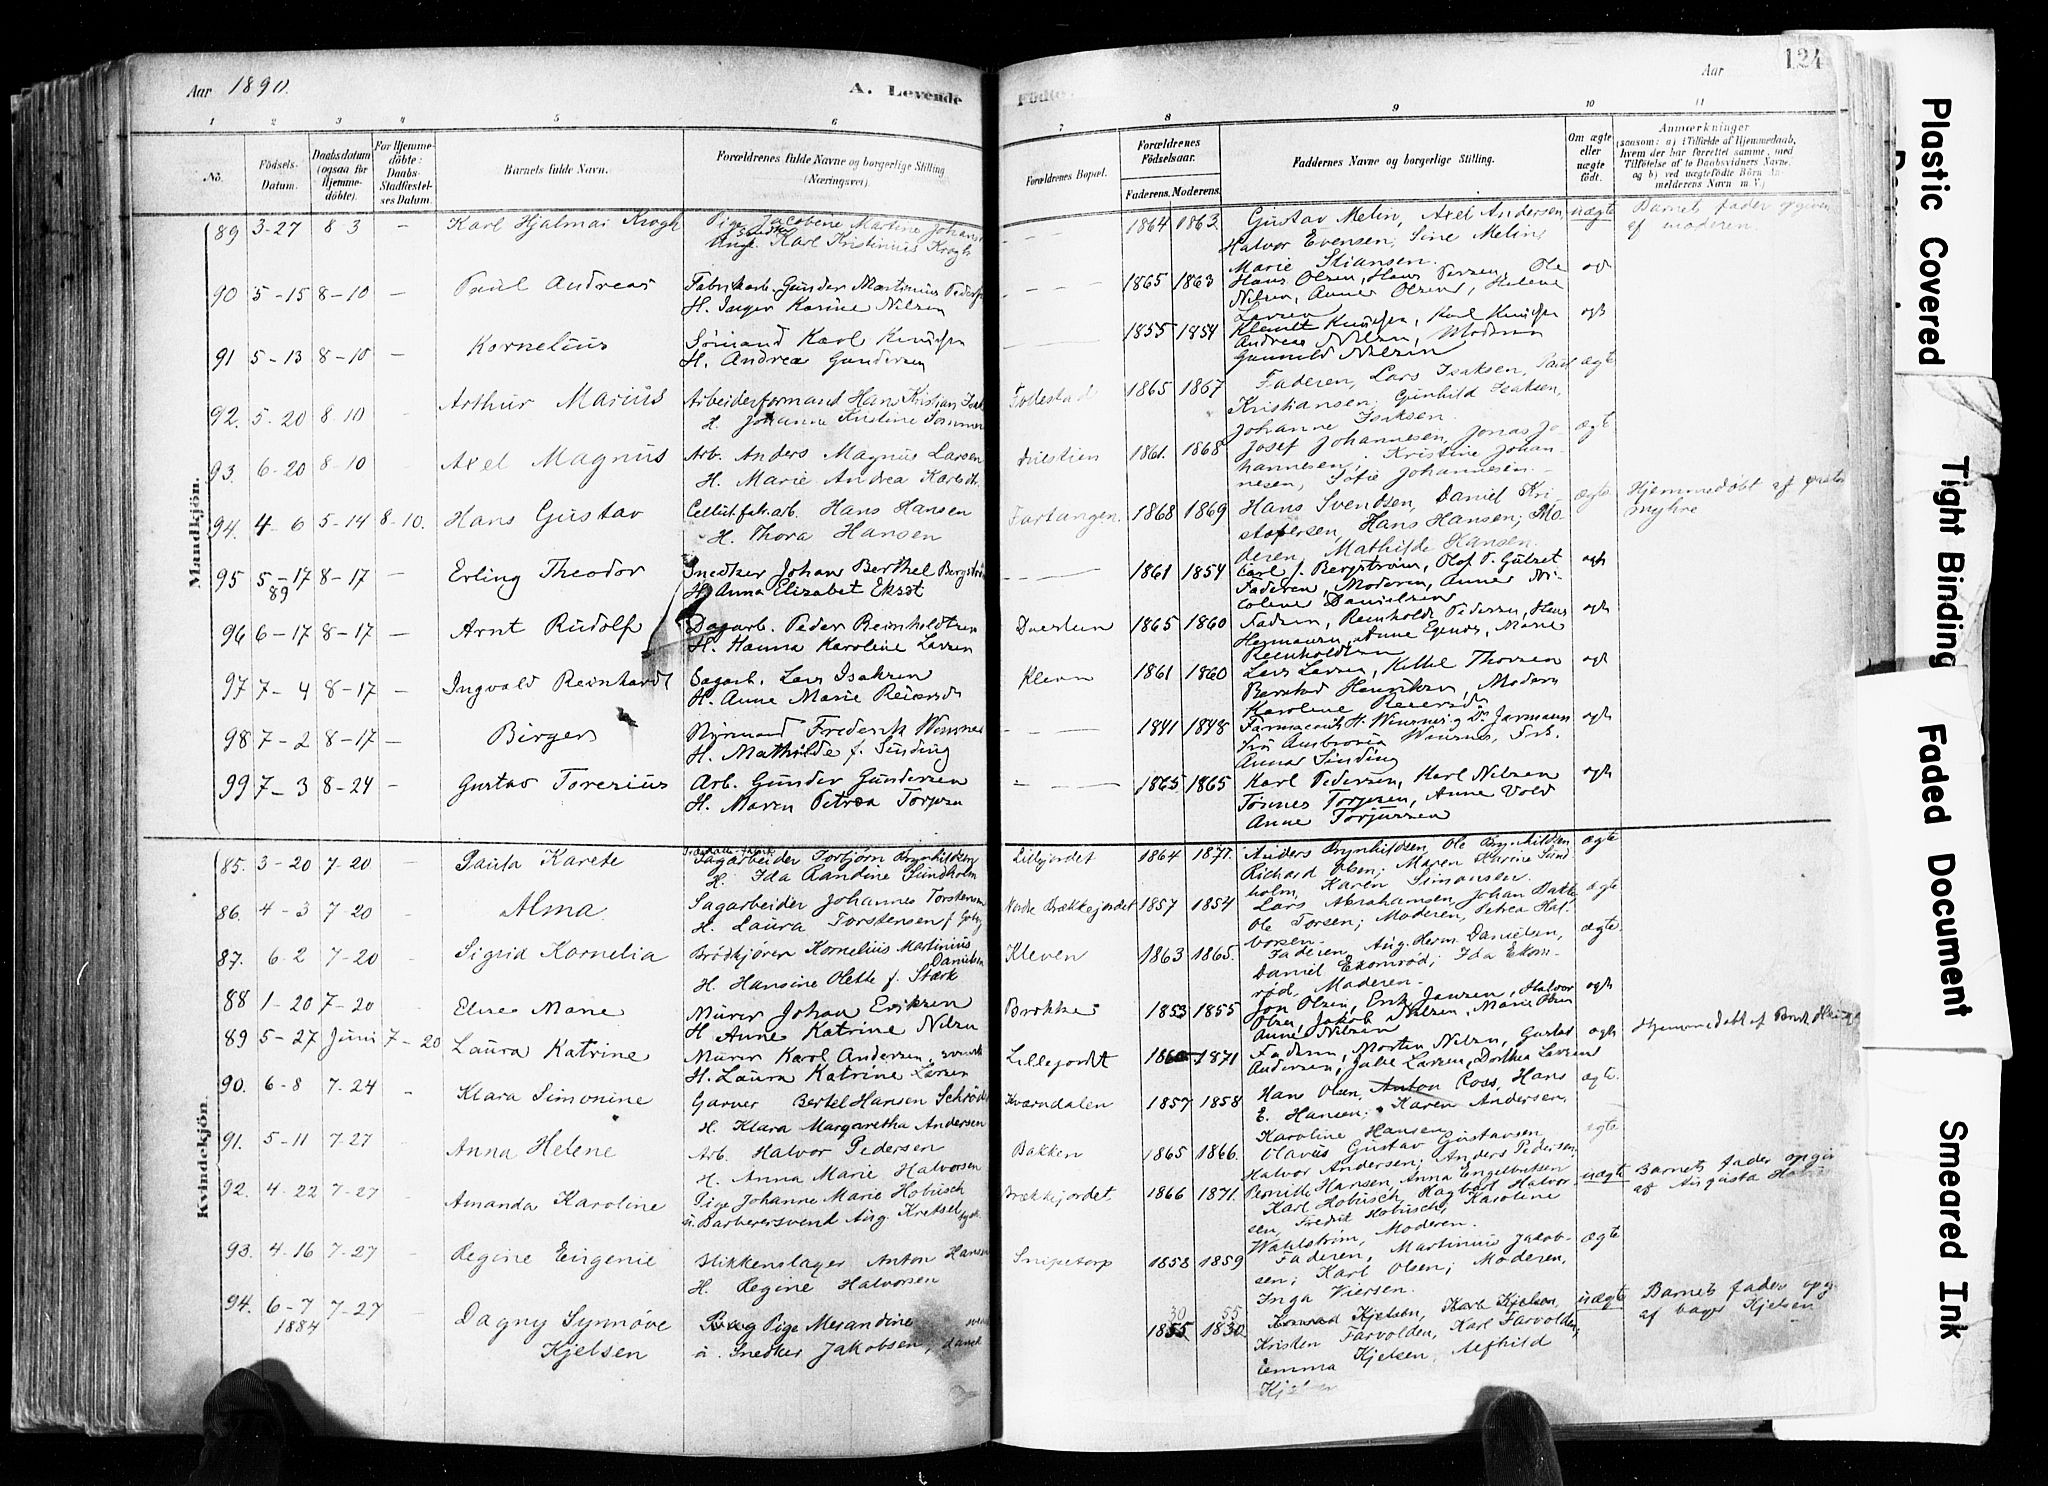 Aar 1890.
A. Levende
Fødte.
Aar
124
1 2 3 4 5 6 7 8 9 10 11
No.
Fødsels-Datum.
Daabsdatum (ogsaa for Hjemme-døbte).
For Hjemme-døbte: Daabs-Stadfæstel-ses Datum.
Barnets fulde Navn.
Forældrenes fulde Navne og borgerlige Stilling (Næringsvei)
Forældrenes Bopæl.
Forældrenes Fødselsaar.
Faderens. Moderens.
Faddernes Navne og borgerlige Stilling.
Om ægte eller uægte født.
Anmærkninger
(saasom: a) i Tilfælde af Hjemmedaab, hvem der har forrettet samme, med Tilføielse af to Daabsvidners Navne, og b) ved uægtefødte Børn An-melderens Navn m. V.)
Mandkjön.
89 3-27 8 3 - Karl Hjalmar Krogh Pige Jacobine Martine Johans
Ung. Karl Kristinius Krogh
1864 1863 Gustav Melin, Axel Andersen uægte Barnets fader opgiven
Halvor Evensen, Sine Melin af moderen.
Marie Stiansen.
90 5-15 8-10 - Paul Andreas Fabrikarb. Gunder Martinius Peders
H. Inger Karine Nilsen
1865 1863 Hans Olsen, Hans Persen, Ole
Nilsen, Anne Olsen, Helene
Larsen
91 5-13 8-10 - Kornelius Sømand Karl Knudsen
H. Andrea Gundersen
1855 1854 Klemet Knudsen, Karl Knudsen ægte
Andreas Nilsen, Moderen
Gunnild Nilsen
92. 5-20 8 10 Arthur Marius Arbeiderformand Hans Kristian Isak
H. Johanne Kristine Sommer
1865 1867 Faderen, Lars Isaksen, Paul ægte
Kristiansen; Gunhild Isaksen,
Johanne Isaksen.
93. 6-20 8-10 Axel Magnus Arb. Anders Magnus Larsen
H. Marie Andrea
1861. 1868 Josef Johannesen, Jonas Jo- ægte
hannesen, Kristine Johan-
nesen, Sofie Johannesen.
94. 4-6 5-14 8-10. Hans Gustav Cellulfabarb. Hans Hansen
H. Thora Hansen
1868 1869 Hans Svendsen, Daniel Kri- ægte Hjemmedøbt af
stofersen, Hans Hansen; Mo- myhre
deren, Mathilde Hansen.
95 5-17 8-17 - Erling Theodor Snedker Johan Berthel Bergstrøm
89 H. Anna Elizabet
1861 1854 Carl J. Bergstrøm, Olof P. ægte
Faderen, Moderen, Anne Ni-
coline Danielsen
96 6-17 8-17 - Arnt Rudolf Dagarb. Peder Reinholdtsen
H. Hanna Karoline Larsen
1865 1860 Faderen, Reinholdt Pedersen, Hans ægte
Hermansen, Anne Marie
Reinholdtsen
97 7-4 8-17 - Ingvald Reinhardt Sagarb. Lars Isaksen
H. Anne Marie
Kleven 1861 1860 Lars Larsen, Kittel Thorsen ægte
Henriksen, Moderen
Karoline
98 7-2 8-17 - Birger Frederik Wennes
H. Mathilde f. Sinding
1841 1848 Farmaceut H. Wennes
Anna Sinding
99 7-3 8-24 - Gustav Toresius Arb. Gunder Gundersen
H. Maren Petrea Torjusen
1865 1865 Karl Pedersen, Karl Nilsen ægte
Tønnes Torjusen, Anne Vold
Anne Torjussen
Kvindekjön.
85. 3-20 7-20 Paula Karete Sagarbeider Torbjørn Brynhildsen
H. Ida Randine Sundholm
Lillejordet 1864 1871. Anders Brynhildsen, Ole Brynhildsen ægte
Richard Olsen; Maren Karine Sund
holm, Karen Simonsen.
86. 4-3 7-20 Alma. Sagarbeider Johannes Torstensen
H. Laura Torstensen f.
Nordre Brækkejordet 1857 1854 Lars Abrahamsen, Johan Bakke, ægte
Ole Torsen; Moderen, Petrea Hal-
vorsen.
87. 6-2 7-20 - Sigrid Kornelia Brødkjører Kornelius Martinius
Danielsen
H. Hansine Olette f. Stærk
Kleven 1863 1865. Faderen, Aug. Herm. Danielsen, ægte.
Daniel Ekomrød; Ida Ekom-
rød, Moderen.
88 1-20 7-20 - Elne Marie Murer Johan Eriksen
H. Anne Katrine Nilsen
Brekke 1853 1855 Jon Olsen, Erik Jansen, Halvor ægte
Olsen, Jakob Nilsen, Marie Olsen
Anne Nilsen
89 5-27 Juni 7-20 Laura Katrine Murer Karl Andersen, svensk
H. Laura Katrine Larsen
Lillejordet 1871 Faderen, Morten Nilsen, Gustav ægte Hjemmedøbt af
Andersen, Julie Larsen, Dorthea Larsen
90. 6-8 7-24 - Klara Simonine Garver Bertel Hansen Schrøder
H. Klara Margaretha Andersen
Kværndalen 1857 1858 Hans Olsen, Anton Ross, Hans ægte.
E. Hansen; Karen Andersen,
Karoline Hansen
91. 5-11 7-27 Anna Helene Arb. Halvor Pedersen
H. Anna Marie Halvorsen
Bakken 1865 1866. Olavus Gustav Gustavsen ægte
Halvor Andersen; Anders Pedersen,
Pernille Hansen, Anna Engelbretsen
92. 4-22 7-27 Amanda Karoline Pige Johanne Marie Hobisch
u. Barberersvend Aug. Kretsel tysk.
Brækkejordet. 1866 1871. Karl Hobisch, Hagbart Halvor uægte Barnets fader opgiv
sen, Fredrik Hobisch; Karoline af Augusta
Wahlstrøm, Moderen.
93. 4-16 7-27 Regine Eugenie Blikkenslager Anton Hansen
H. Regine Halvorsen
Snipetorp 1858 1859 Faderen, Martinius Jacob- ægte
sen; Karl Olsen; Moderen,
Inga Iversen.
94. 6-7 7-27 - Dagny Synnøve Pige Mesandine
1884 Kjelsen u. Snedker Jakobsen, dansk
30 55
1855 1830 Konrad Kjelsen, Karl Kjelsen uægte Barnets fader opg.
Kristen Farvolden, Karl Farvolden; af Kjelsen
Emma Kjelsen,
Plastic Covered
Tight Binding
Faded Document
Smeared Ink